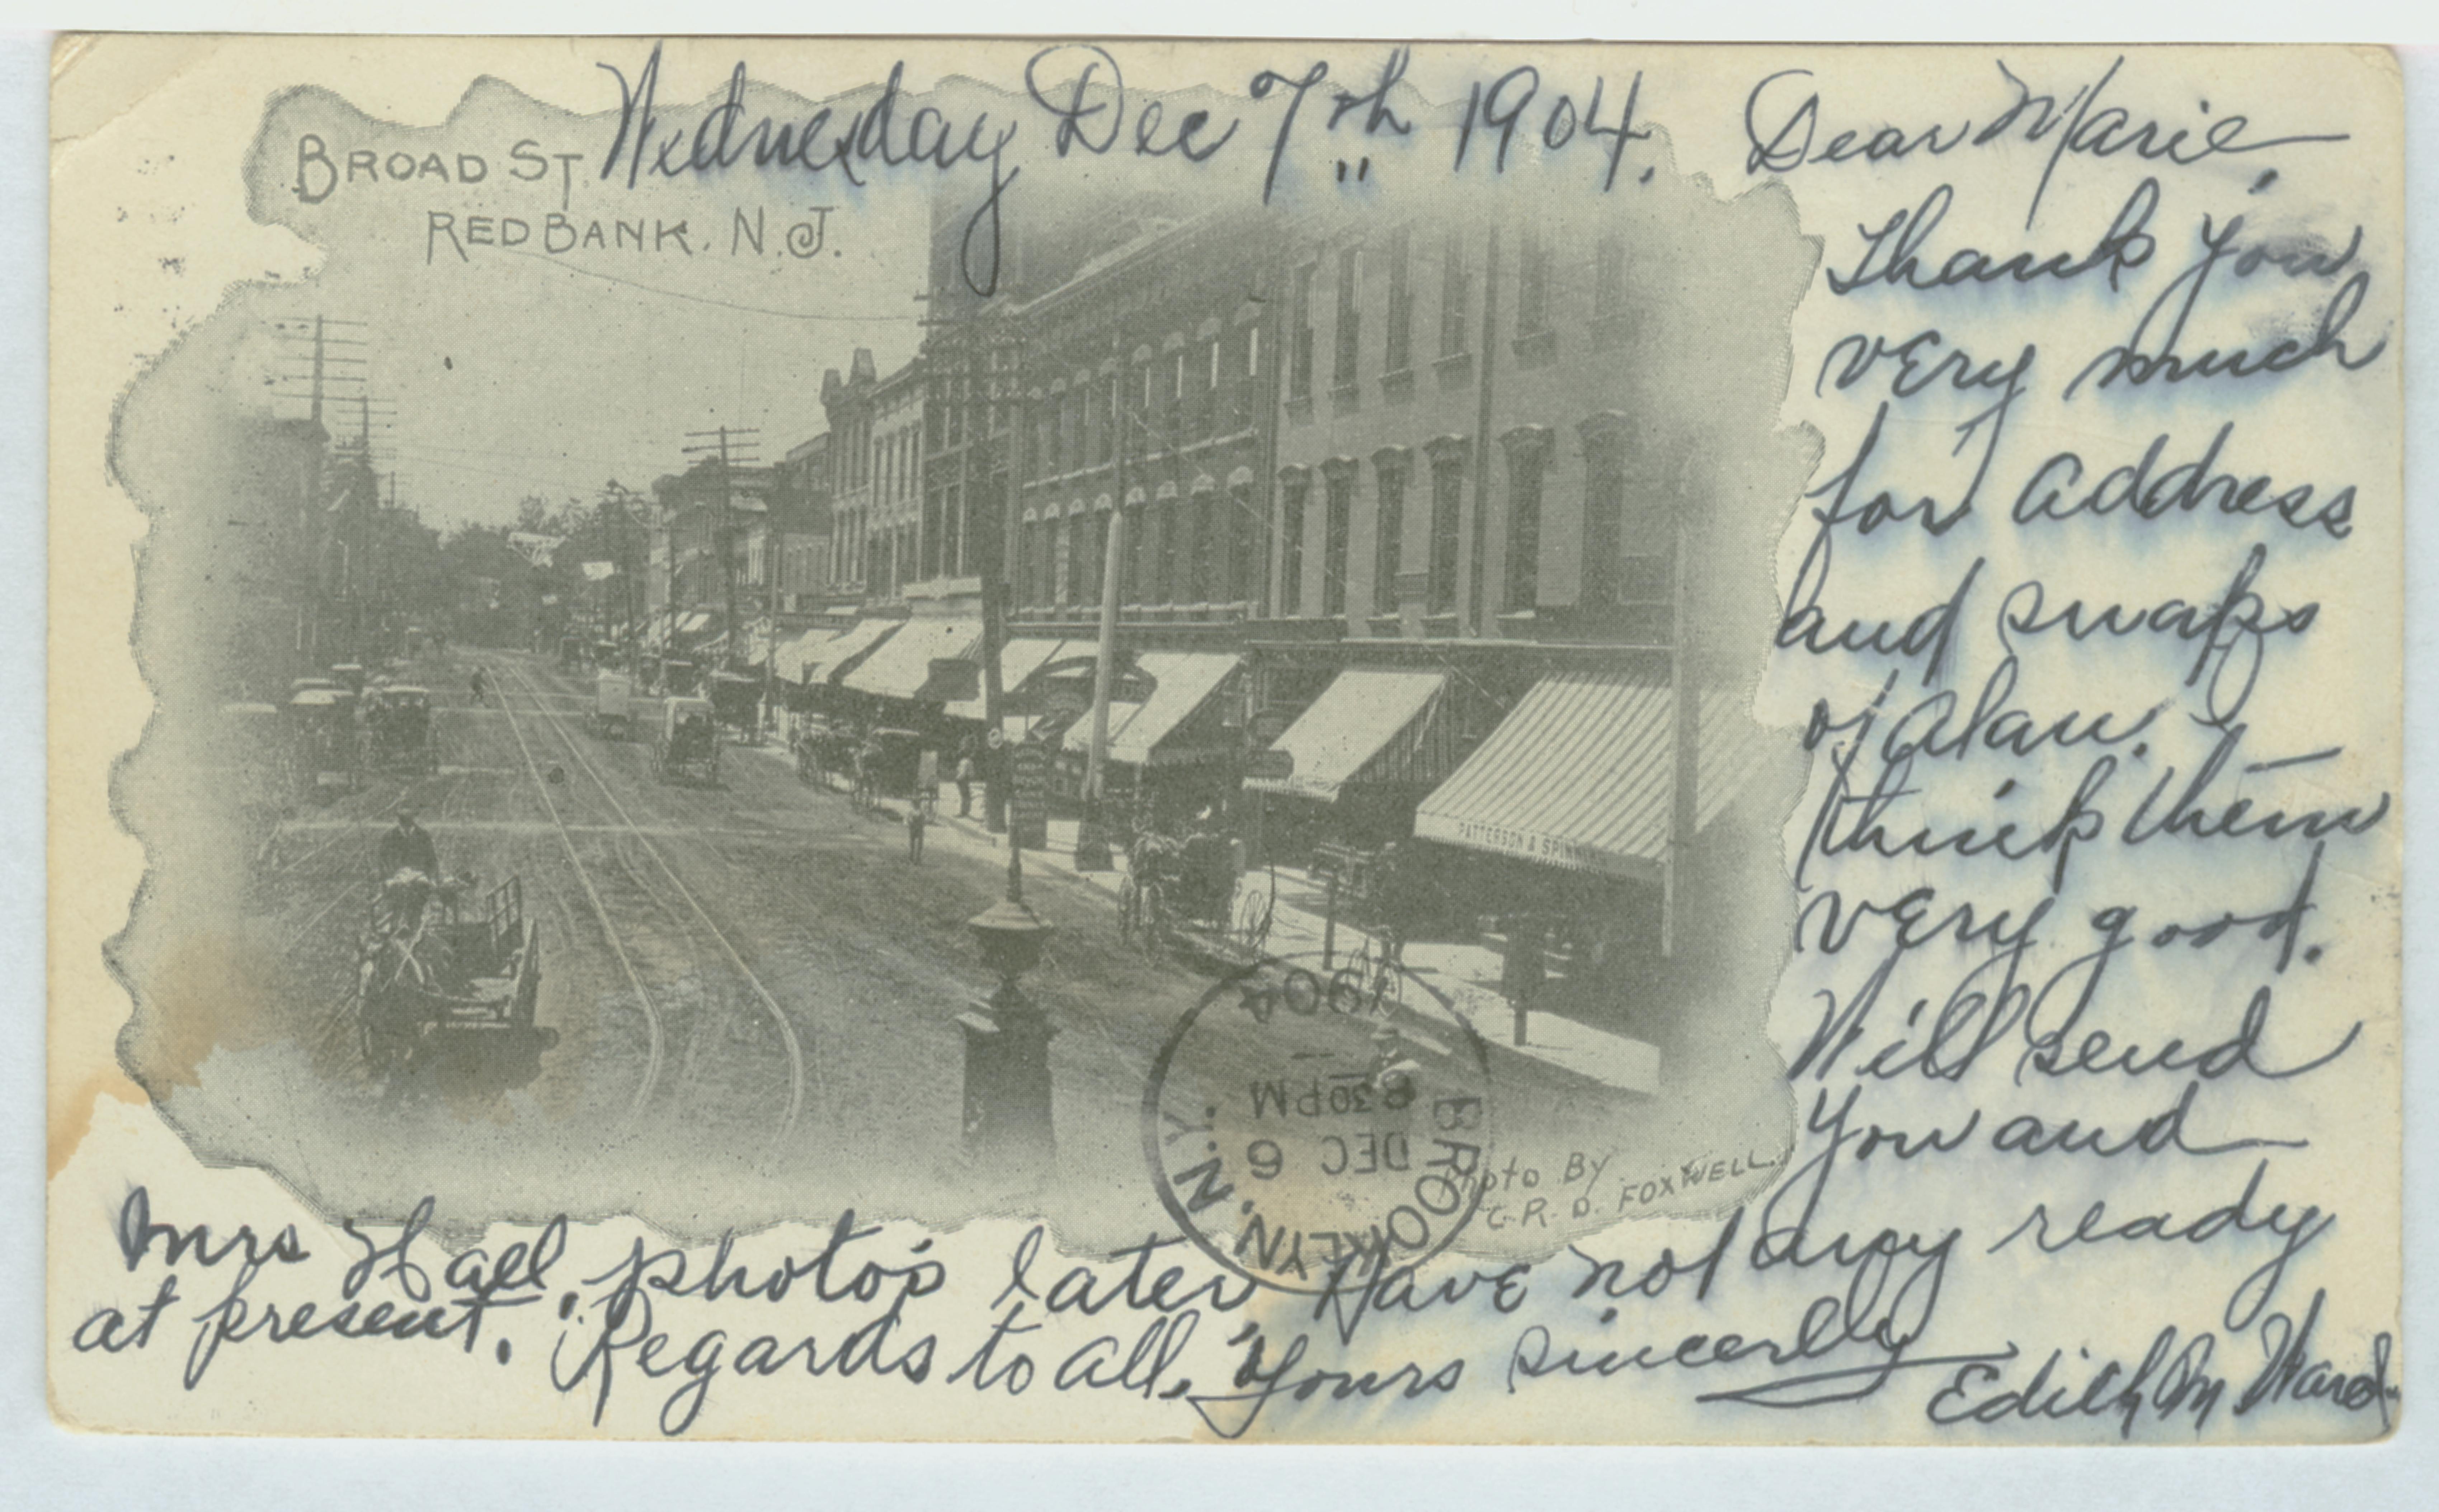 BROAD ST.
RED BANK. N.J.
Wednesday Dec 7th 1904.
Dear Marie,
Thank you
very much
for address
and snaps
of Alan.
think them
very good.
Will send
you and
Mrs Hall, photo's later, Have not any ready
at present. Regards to all. Yours sincerly
Edith M Ward
PATTERSON & SPINN
Photo By
C. R. D. FOXWELL.
BROOKLYN, N.Y.
DEC 6
830PM
1904